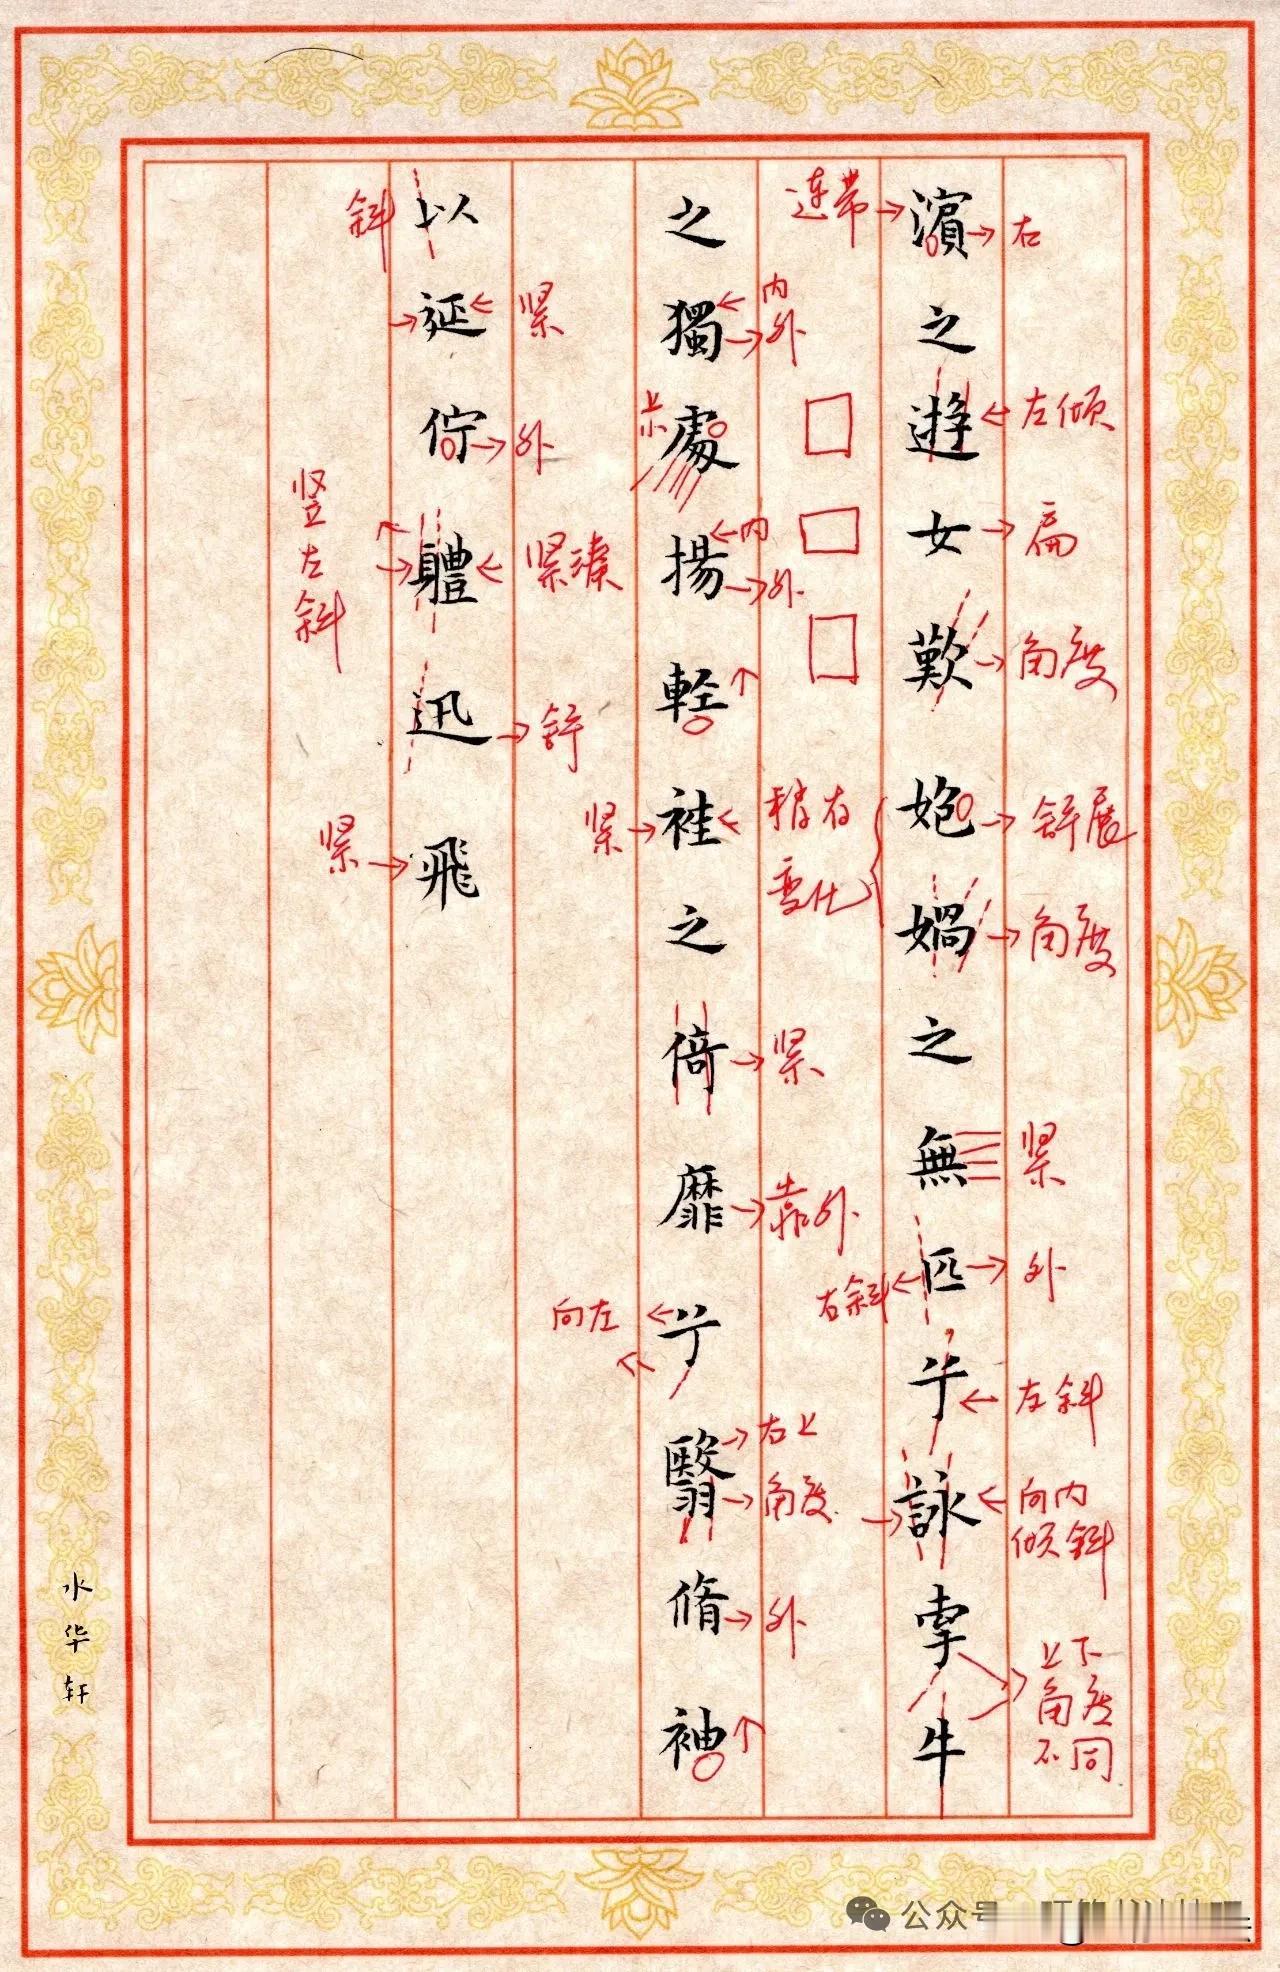 右
左倾
扁
角度
舒展
角度
紧
外
左斜
向内
倾斜
上下
角度
不同
濱之遊女歎㚿媧之無匹兮詠牽牛
连带
内
外
内
外
稍有
变化
紧
靠外
右斜
右上
角度
外
之獨處揚輕袿之倚靡兮翳脩袖
紧
外
紧凑
舒
紧
向左
以延佇體迅飛
斜
竖左斜
紧
水华轩
公众号